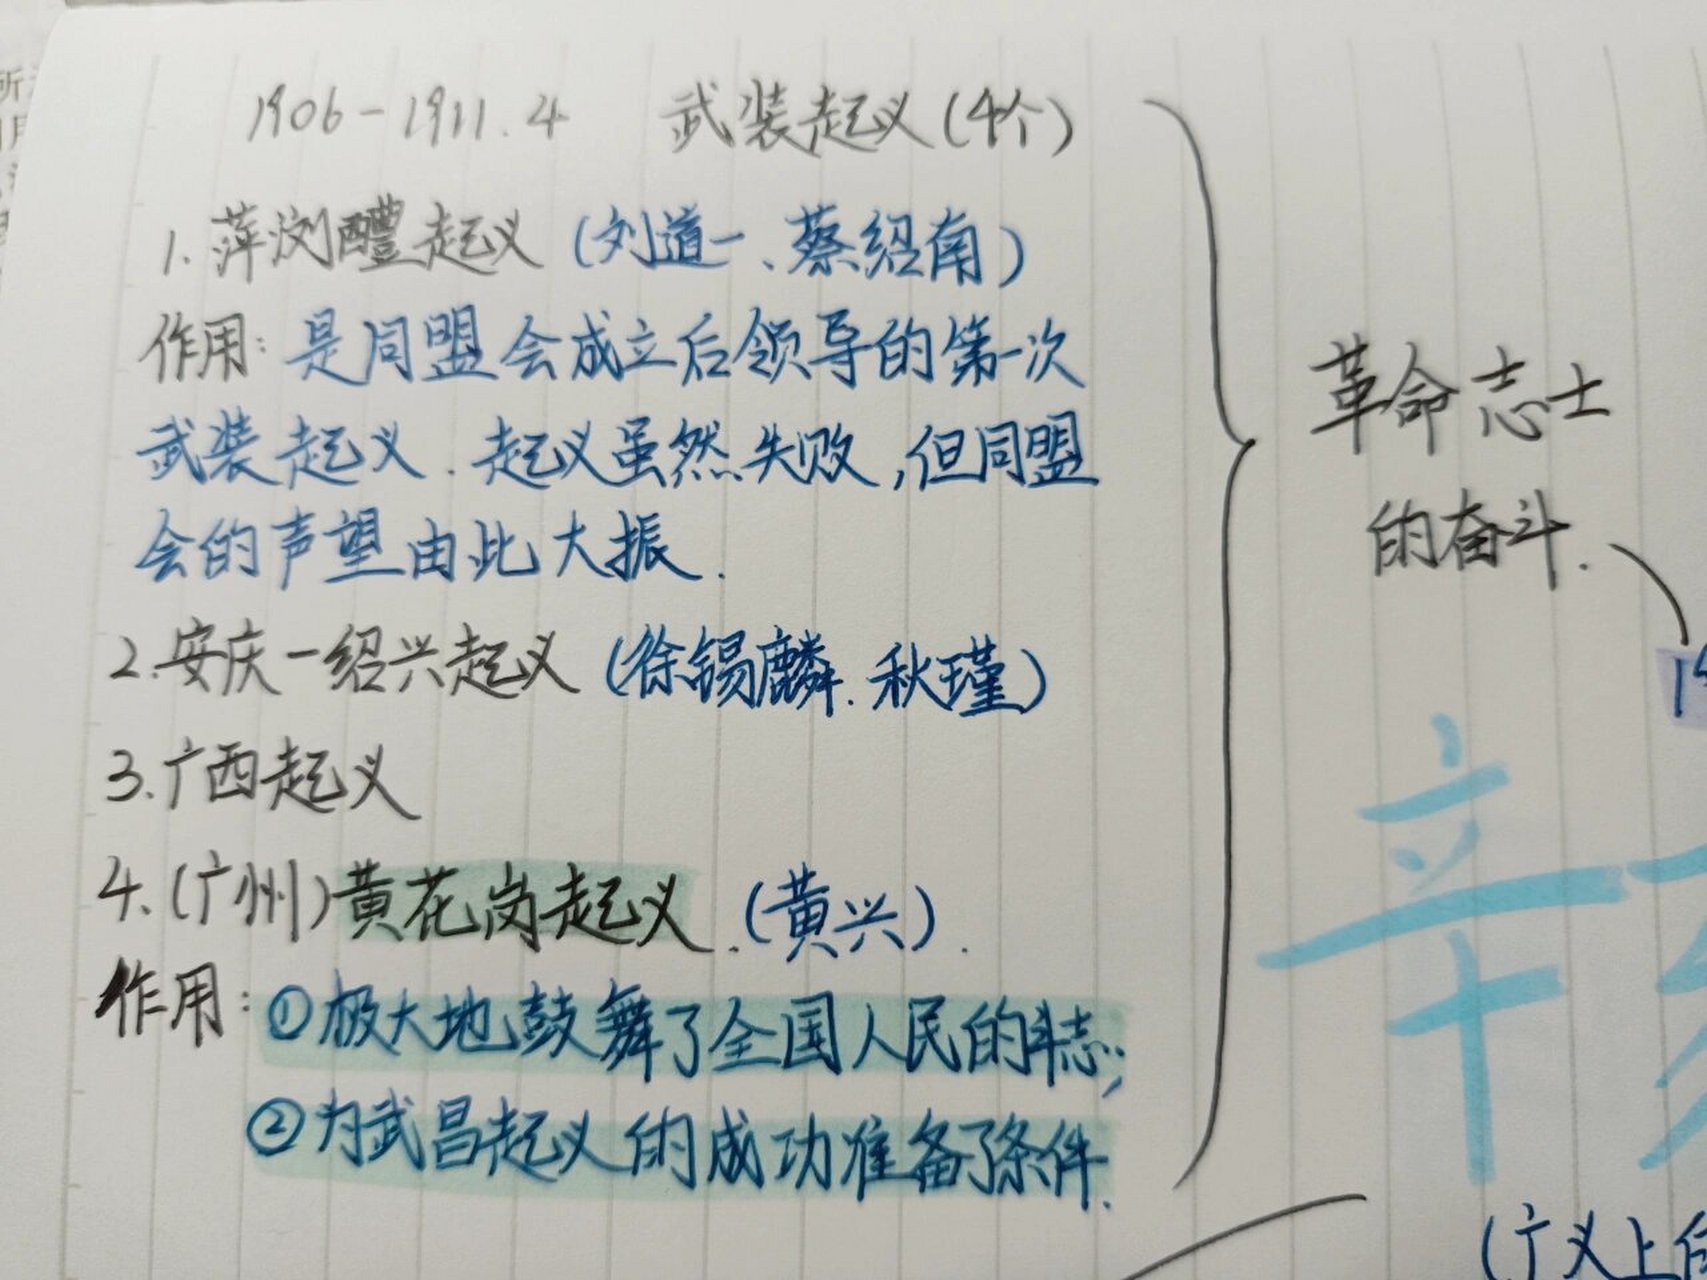 1906-1911.4 武装起义(4个)
1. 萍浏醴起义 (刘道一、蔡绍南)
作用: 是同盟会成立后领导的第一次
武装起义. 起义虽然失败,但同盟
会的声望由此大振.
2. 安庆-绍兴起义 (徐锡麟. 秋瑾)
3. 广西起义
4. (广州)黄花岗起义. (黄兴).
作用: ①极大地鼓舞了全国人民的斗志;
②为武昌起义的成功准备了条件.
革命志士
的奋斗.
辛
(广义上